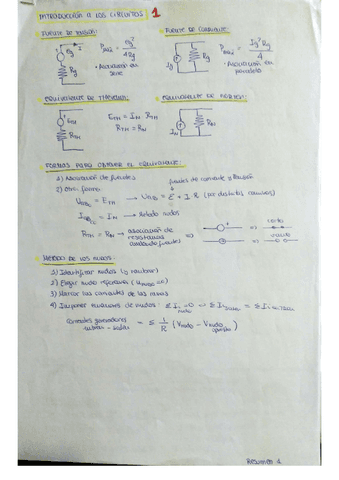 INTRODUCCIÓN A LOS CIRCUITOS 1
FUENTE DE TENSIÓN:
Eg
Rg
Pmáx = Eg² / 4Rg
• Asociación en serie
FUENTE DE CORRIENTE:
Ig
Rg
Pmáx = Ig² Rg / 4
• Asociación en paralelo
EQUIVALENTE DE THEVENIN:
ETH
RTH
ETH = IN RTH
RTH = RN
EQUIVALENTE DE NORTON:
IN
RN
FORMAS PARA OBTENER EL EQUIVALENTE:
1) Asociación de fuentes
2) Otra forma
fuentes de corriente y tensión
= ETH → = E + I·R (por distintos caminos)
= IN → Método nudos
RTH = RN → asociación de resistencias anulando fuentes
⇒ corto
⇒
MÉTODO DE LOS NUDOS:
1) Identificar nudos (y nombrar)
2) Elegir nudo referencia
3) Marcar las corrientes de las ramas
4) Imponer ecuaciones de nudos: Σ I = 0
= Σ 1/R (Vnudo - Vnudo opuesto)
Resumen 1